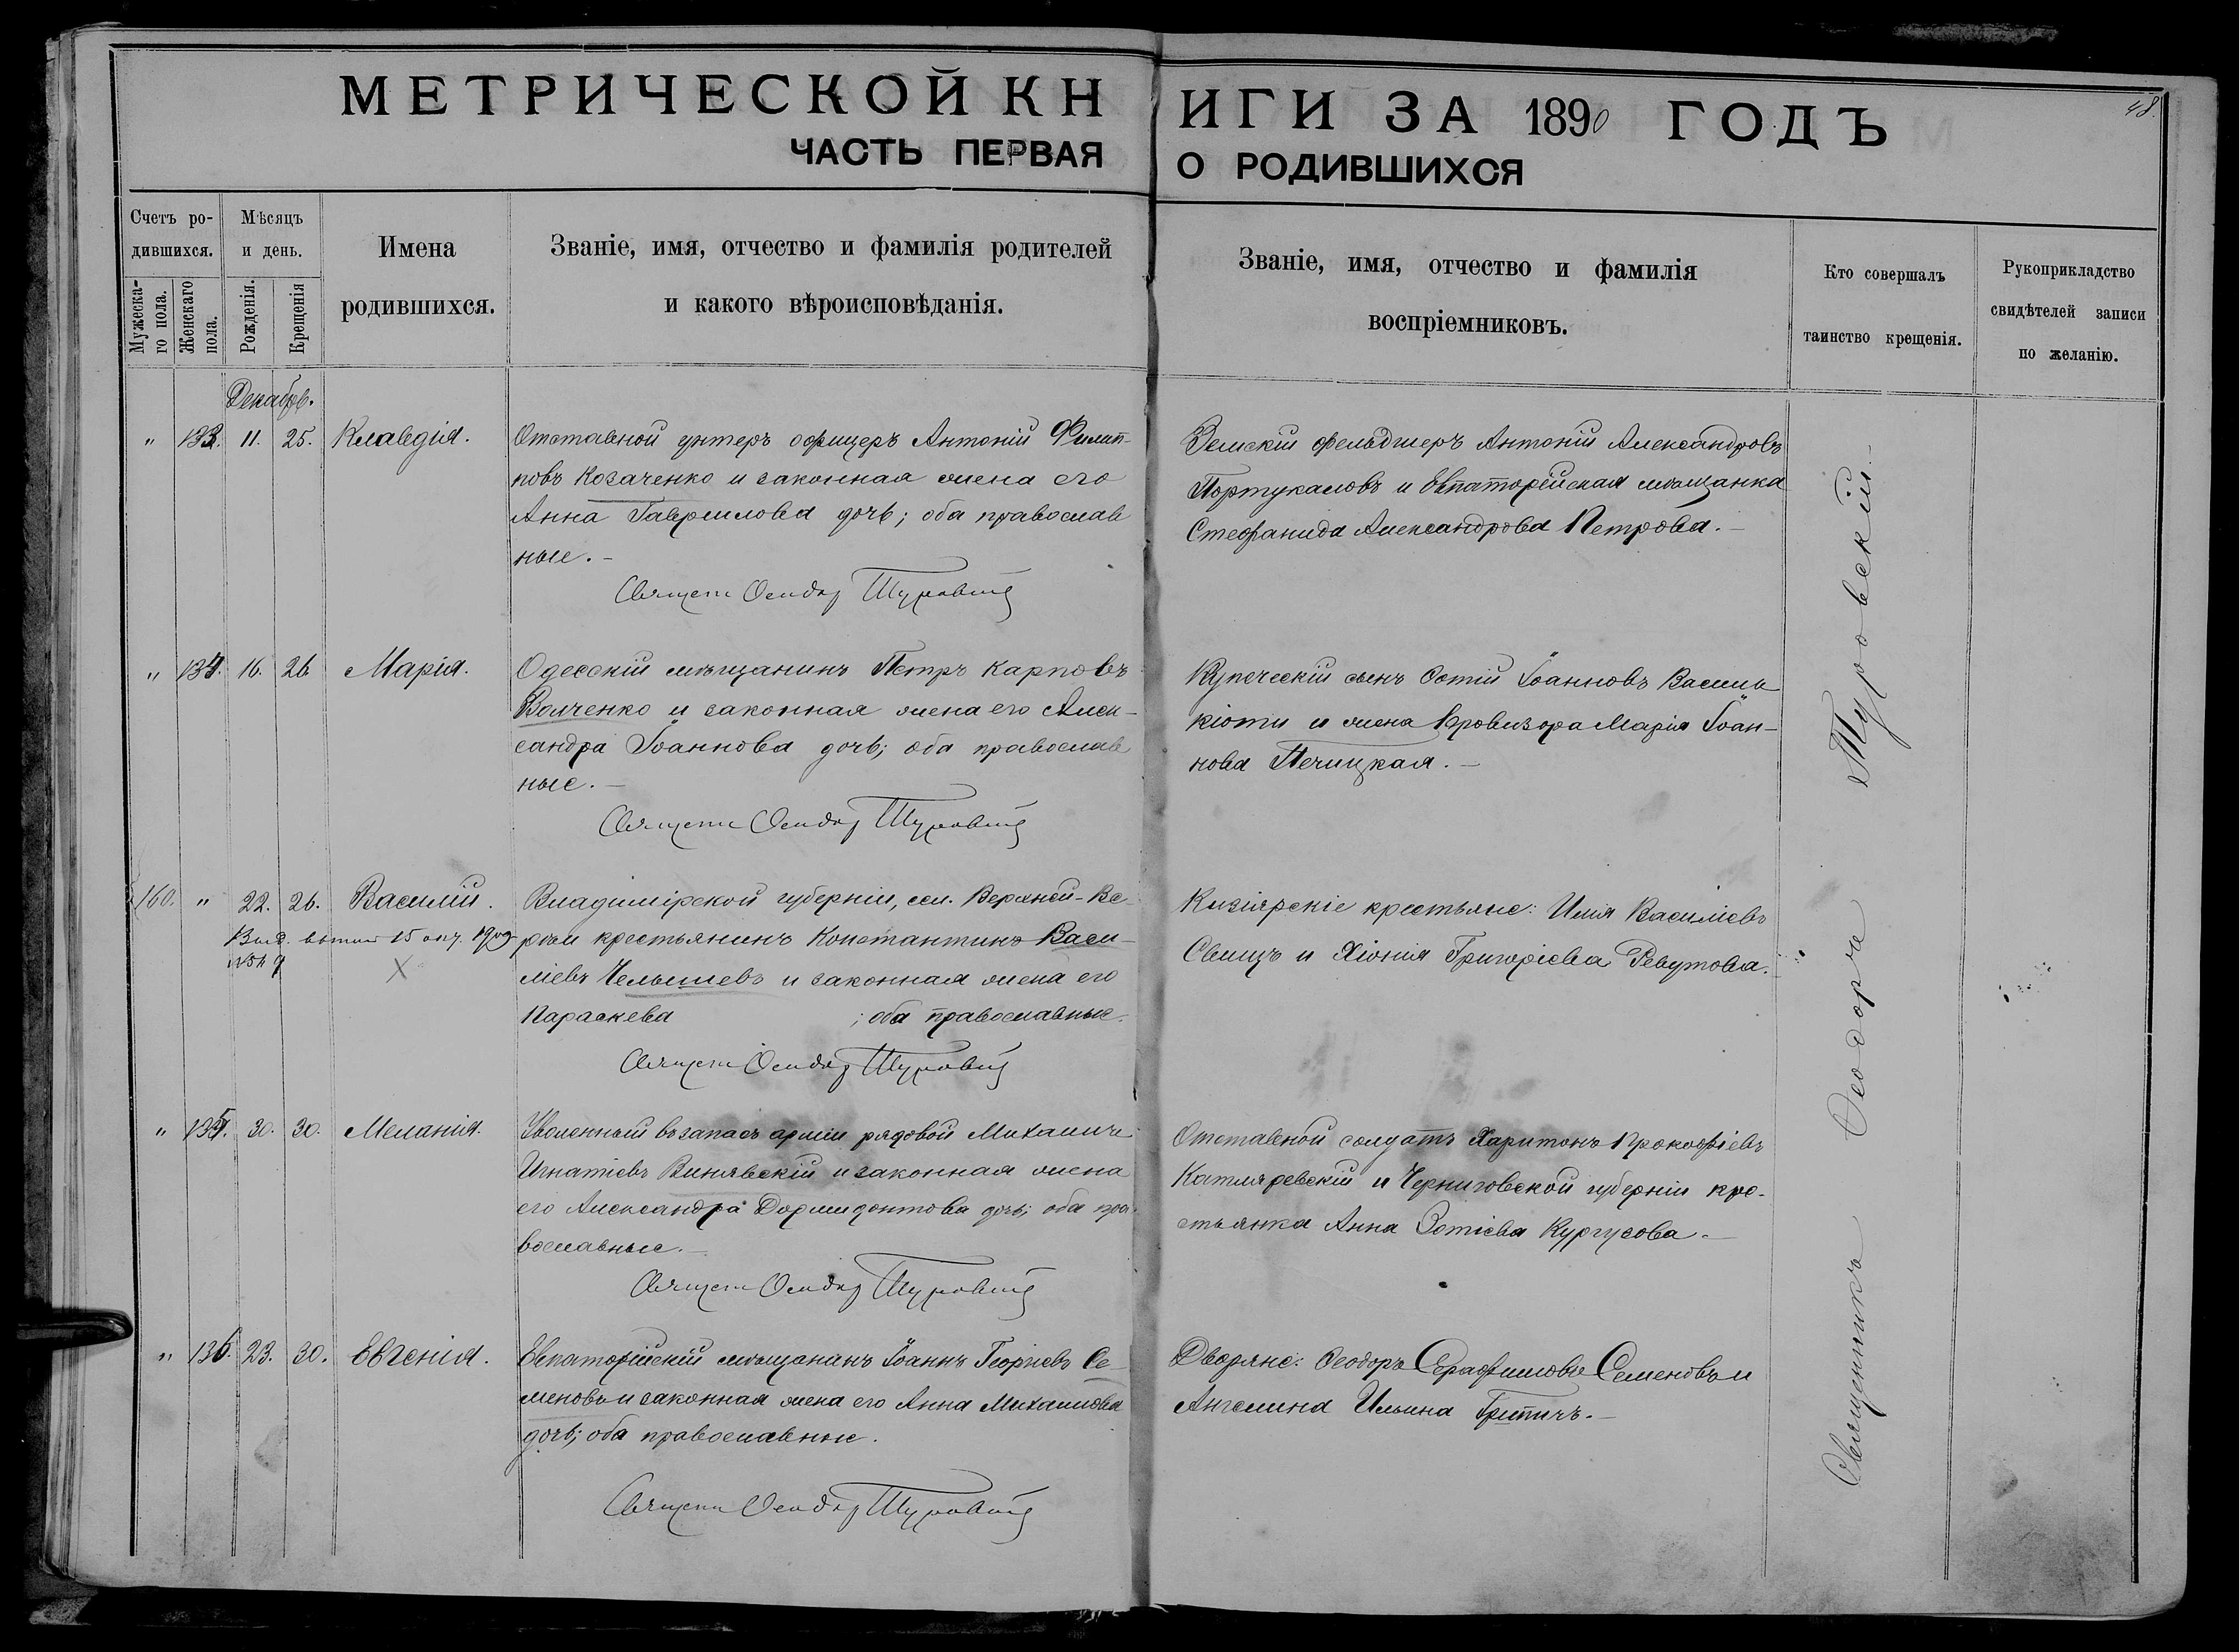 МЕТРИЧЕСКОЙ КНИГИ ЗА 1890 ГОДЪ
48.
ЧАСТЬ ПЕРВАЯ О РОДИВШИХСЯ
Счетъ ро-
дившихся.
Мужеска-
го пола.
Женскаго
пола.
Мѣсяцъ
и день.
Рожденія.
Крещенія
Имена
родившихся.
Званіе, имя, отчество и фамилія родителей
и какого вѣроисповѣданія.
Званіе, имя, отчество и фамилія
воспріемниковъ.
Кто совершалъ
таинство крещенія.
Рукоприкладство
свидѣтелей записи
по желанію.
Декабрь.
" 133. 11. 25. Клавдія.
Отставной унтеръ офицеръ Антоній Филип-
повъ Козаченко и законная жена его
Анна Гаврилова дочь; оба православ
ные.-
Священ Ѳеодор Туровскій
Земскій фельдшеръ Антоній Александровъ
Портукаловъ и Евпаторійская мѣщанка
Стефанида Александрова Петрова.-
" 134. 16. 26. Марія.
Одесскій мѣщанинъ Петръ Карповъ
Волченко и законная жена его Алек-
сандра Іоаннова дочь; оба православ
ные.-
Священ Ѳеодор Туровскій
Купеческій сынъ Іоанновъ Василь
кіоти и жена Провизора Марія Іоан-
нова Печицкая.-
160. " 22. 26. Василій.
Выд. 15 1909
Владимірской губерніи, сел. Верхней-Ве-
крестьянинъ Константинъ Васи-
ліевъ Челышевъ и законная жена его
Параскева ; оба православные.
Священ Ѳеодор Туровскій
Кизіярскіе крестьяне: Илія Василіевъ
Свищъ и Хіонія Григоріева Ревутова.
" 135. 30. 30. Меланія.
Уволенный въ запасъ арміи рядовой Михаилъ
Игнатіевъ Винявскій и законная жена
его Александра Дормидонтова дочь; оба пра-
вославные.-
Священ Ѳеодор Туровскій
Отставной солдатъ Харитонъ Прокофіевъ
Катляревскій и Черниговской губерніи кре-
стьянка Анна Зотіева Кургузова.-
" 136. 23. 30. Евгенія.
Евпаторійскій мѣщананъ Іоаннъ Георгіевъ Се-
меновъ и законная жена его Анна Михаилова
дочь; оба православные.
Священ Ѳеодор Туровскій
Дворяне: Ѳеодоръ Серафимовъ Семеновъ и
Ангелина Ильина Грипичъ.-
Священникъ Ѳеодоръ Туровскій.-